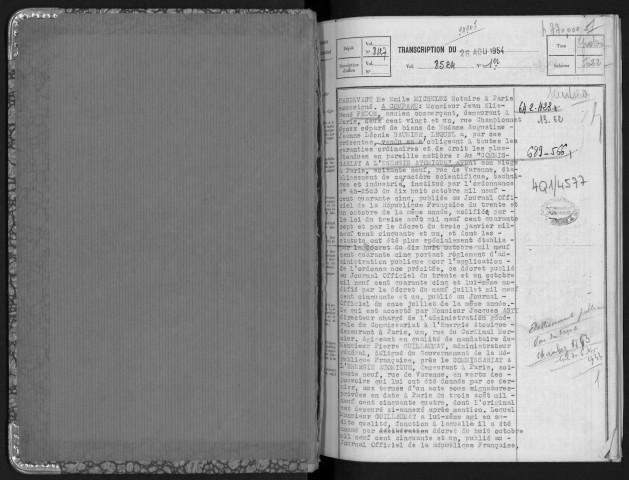 Dépôt
Vol.
N° 8127
TRANSCRIPTION DU 26 AOU 1954
Vol. 2524 N° 1er
Taxe
Salaires
PARDEVANT Me Emile MICHELEZ Notaire à Paris
soussigné. A COMPARU: Monsieur Jean Elie-
René, ancien commerçant, demeurant à
Paris, deux cent vingt et un, rue Championnet
époux séparé de biens de Madame Augustine-
Jeanne Léonie. LEQUEL a, par ces
présentes, vendu en s'obligeant à toutes les
garanties ordinaires et de droit les plus-
étendues en pareille matière: Au "COMMIS-
SARIAT A L'ENERGIE ATOMIQUE" ayant son siège
à Paris, soixante neuf, rue de Varenne, éta-
blissement de caractère scientifique, techni-
que et industriel, institué par l'ordonnance
N° 45-2563 du dix huit octobre mil neuf-
cent quarante cinq, publiée au Journal Offi-
ciel de la République Française du trente et
un octobre de la même année, modifiée par
la loi du treize août mil neuf cent quarante
sept et par le décret du trois janvier mil-
neuf cent cinquante et un, et dont les-
statuts ont été plus spécialement établis
par le décret du dix huit octobre mil neuf
cent quarante cinq portant règlement d'ad-
ministration publique pour l'application -
de l'ordonnance précitée, ce décret publié
au Journal Officiel du trente et un octobre
mil neuf cent quarante cinq et lui-même mo-
difié par le décret du neuf juillet mil neuf
cent cinquante et un, publié au Journal-
Officiel du onze juillet de la même année.
Ce qui est accepté par Monsieur Jacques
directeur chargé de l'administration géné-
rale du Commissariat à l'Energie Atomique -
demeurant à Paris, rue du Cardinal Mer-
cier, agissant en qualité de mandataire de-
Monsieur Pierre GUILLAUMAT, administrateur
général, délégué du Gouvernement de la Ré-
publique Française, près le COMMISSARIAT A
L'ENERGIE ATOMIQUE, demeurant à Paris, soi-
xante neuf, rue de Varenne, en vertu des -
pouvoirs qui lui ont été donnés par ce der-
nier, aux termes d'un acte sous signatures-
privées en date à Paris du trois août mil-
neuf cent cinquante quatre, dont l'original
est demeuré ci-annexé après mention. Lequel
Monsieur GUILLAUMAT a lui-même agi en sa-
dite qualité, fonction à laquelle il a été
nommé par décret du huit octobre
mil neuf cent cinquante et un, publié au -
Journal Officiel de la République Française,
689-566
4Q1/4577